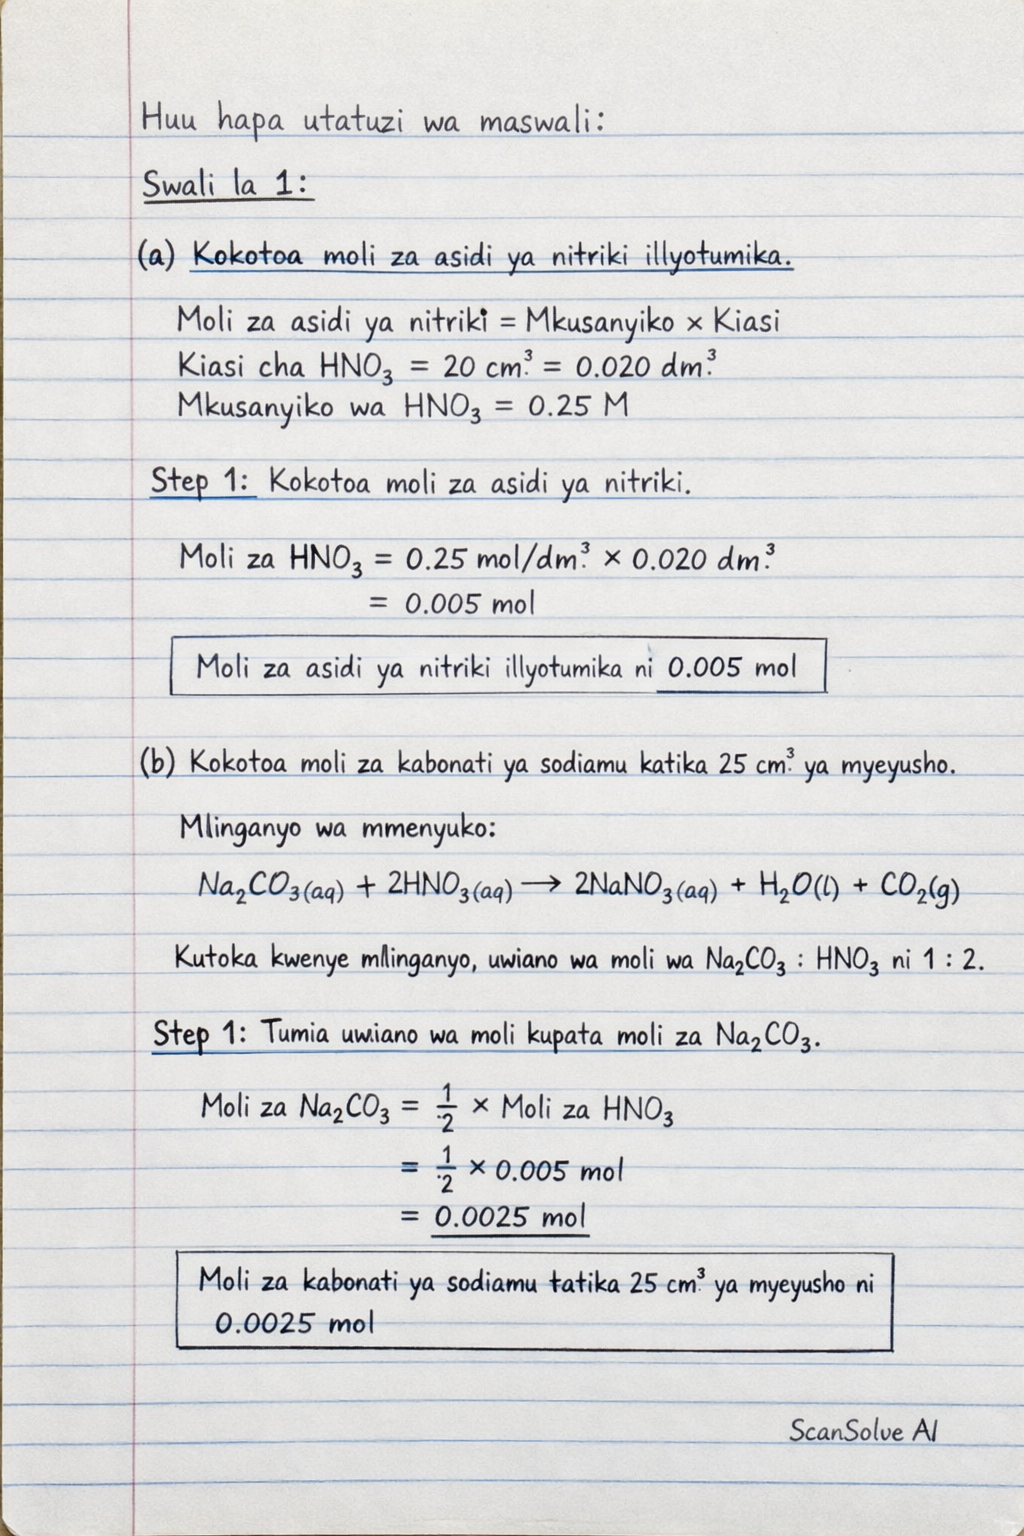 Huu hapa utatuzi wa maswali:
Swali la 1:
(a) Kokotoa moli za asidi ya nitriki illyotumika.
Moli za asidi ya nitriki = Mkusanyiko × Kiasi
Kiasi cha HNO₃ = 20 cm³ = 0.020 dm³
Mkusanyiko wa HNO₃ = 0.25 M
Step 1: Kokotoa moli za asidi ya nitriki.
Moli za HNO₃ = 0.25 mol/dm³ × 0.020 dm³
= 0.005 mol
Moli za asidi ya nitriki illyotumika ni 0.005 mol
(b) Kokotoa moli za kabonati ya sodiamu katika 25 cm³ ya myeyusho.
Mlinganyo wa mmenyuko:
Na₂CO₃(aq) + 2HNO₃(aq) → 2NaNO₃(aq) + H₂O(l) + CO₂(g)
Kutoka kwenye mllinganyo, uwiano wa moli wa Na₂CO₃ : HNO₃ ni 1 : 2.
Step 1: Tumia uwiano wa moli kupata moli za Na₂CO₃.
Moli za Na₂CO₃ = 1/2 × Moli za HNO₃
= 1/2 × 0.005 mol
= 0.0025 mol
Moli za kabonati ya sodiamu tatika 25 cm³ ya myeyusho ni
0.0025 mol
ScanSolve AI